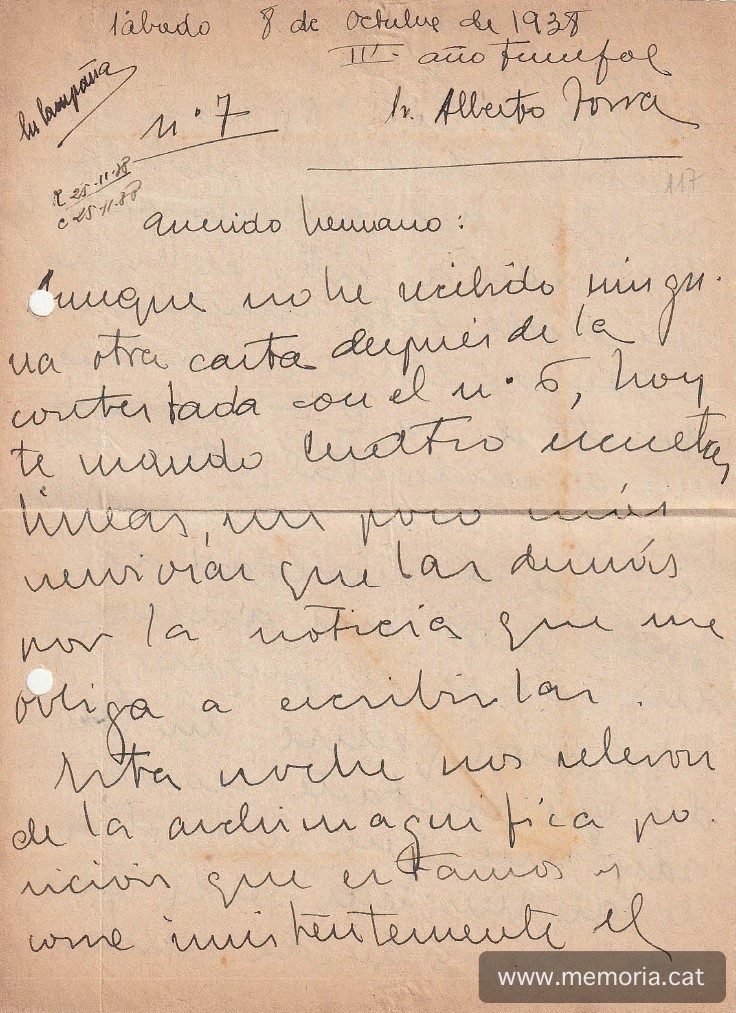 Sábado 8 de Octubre de 1938
III año triunfal
En Campaña
nº 7
Sr. Alberto Torra
R 25-11-88
C 25-11-88
117
Querido hermano:
Aunque no he recibido ningu-
na otra carta después de la
contestada con el nº 6, hoy
te mando cuatro escuetas
líneas, un poco más
nerviosas que las demás
por la noticia que me
obliga a escribirlas.
Esta noche nos relevan
de la archimagnífica po-
sición que estamos y
corre insistentemente el
www.memoria.cat